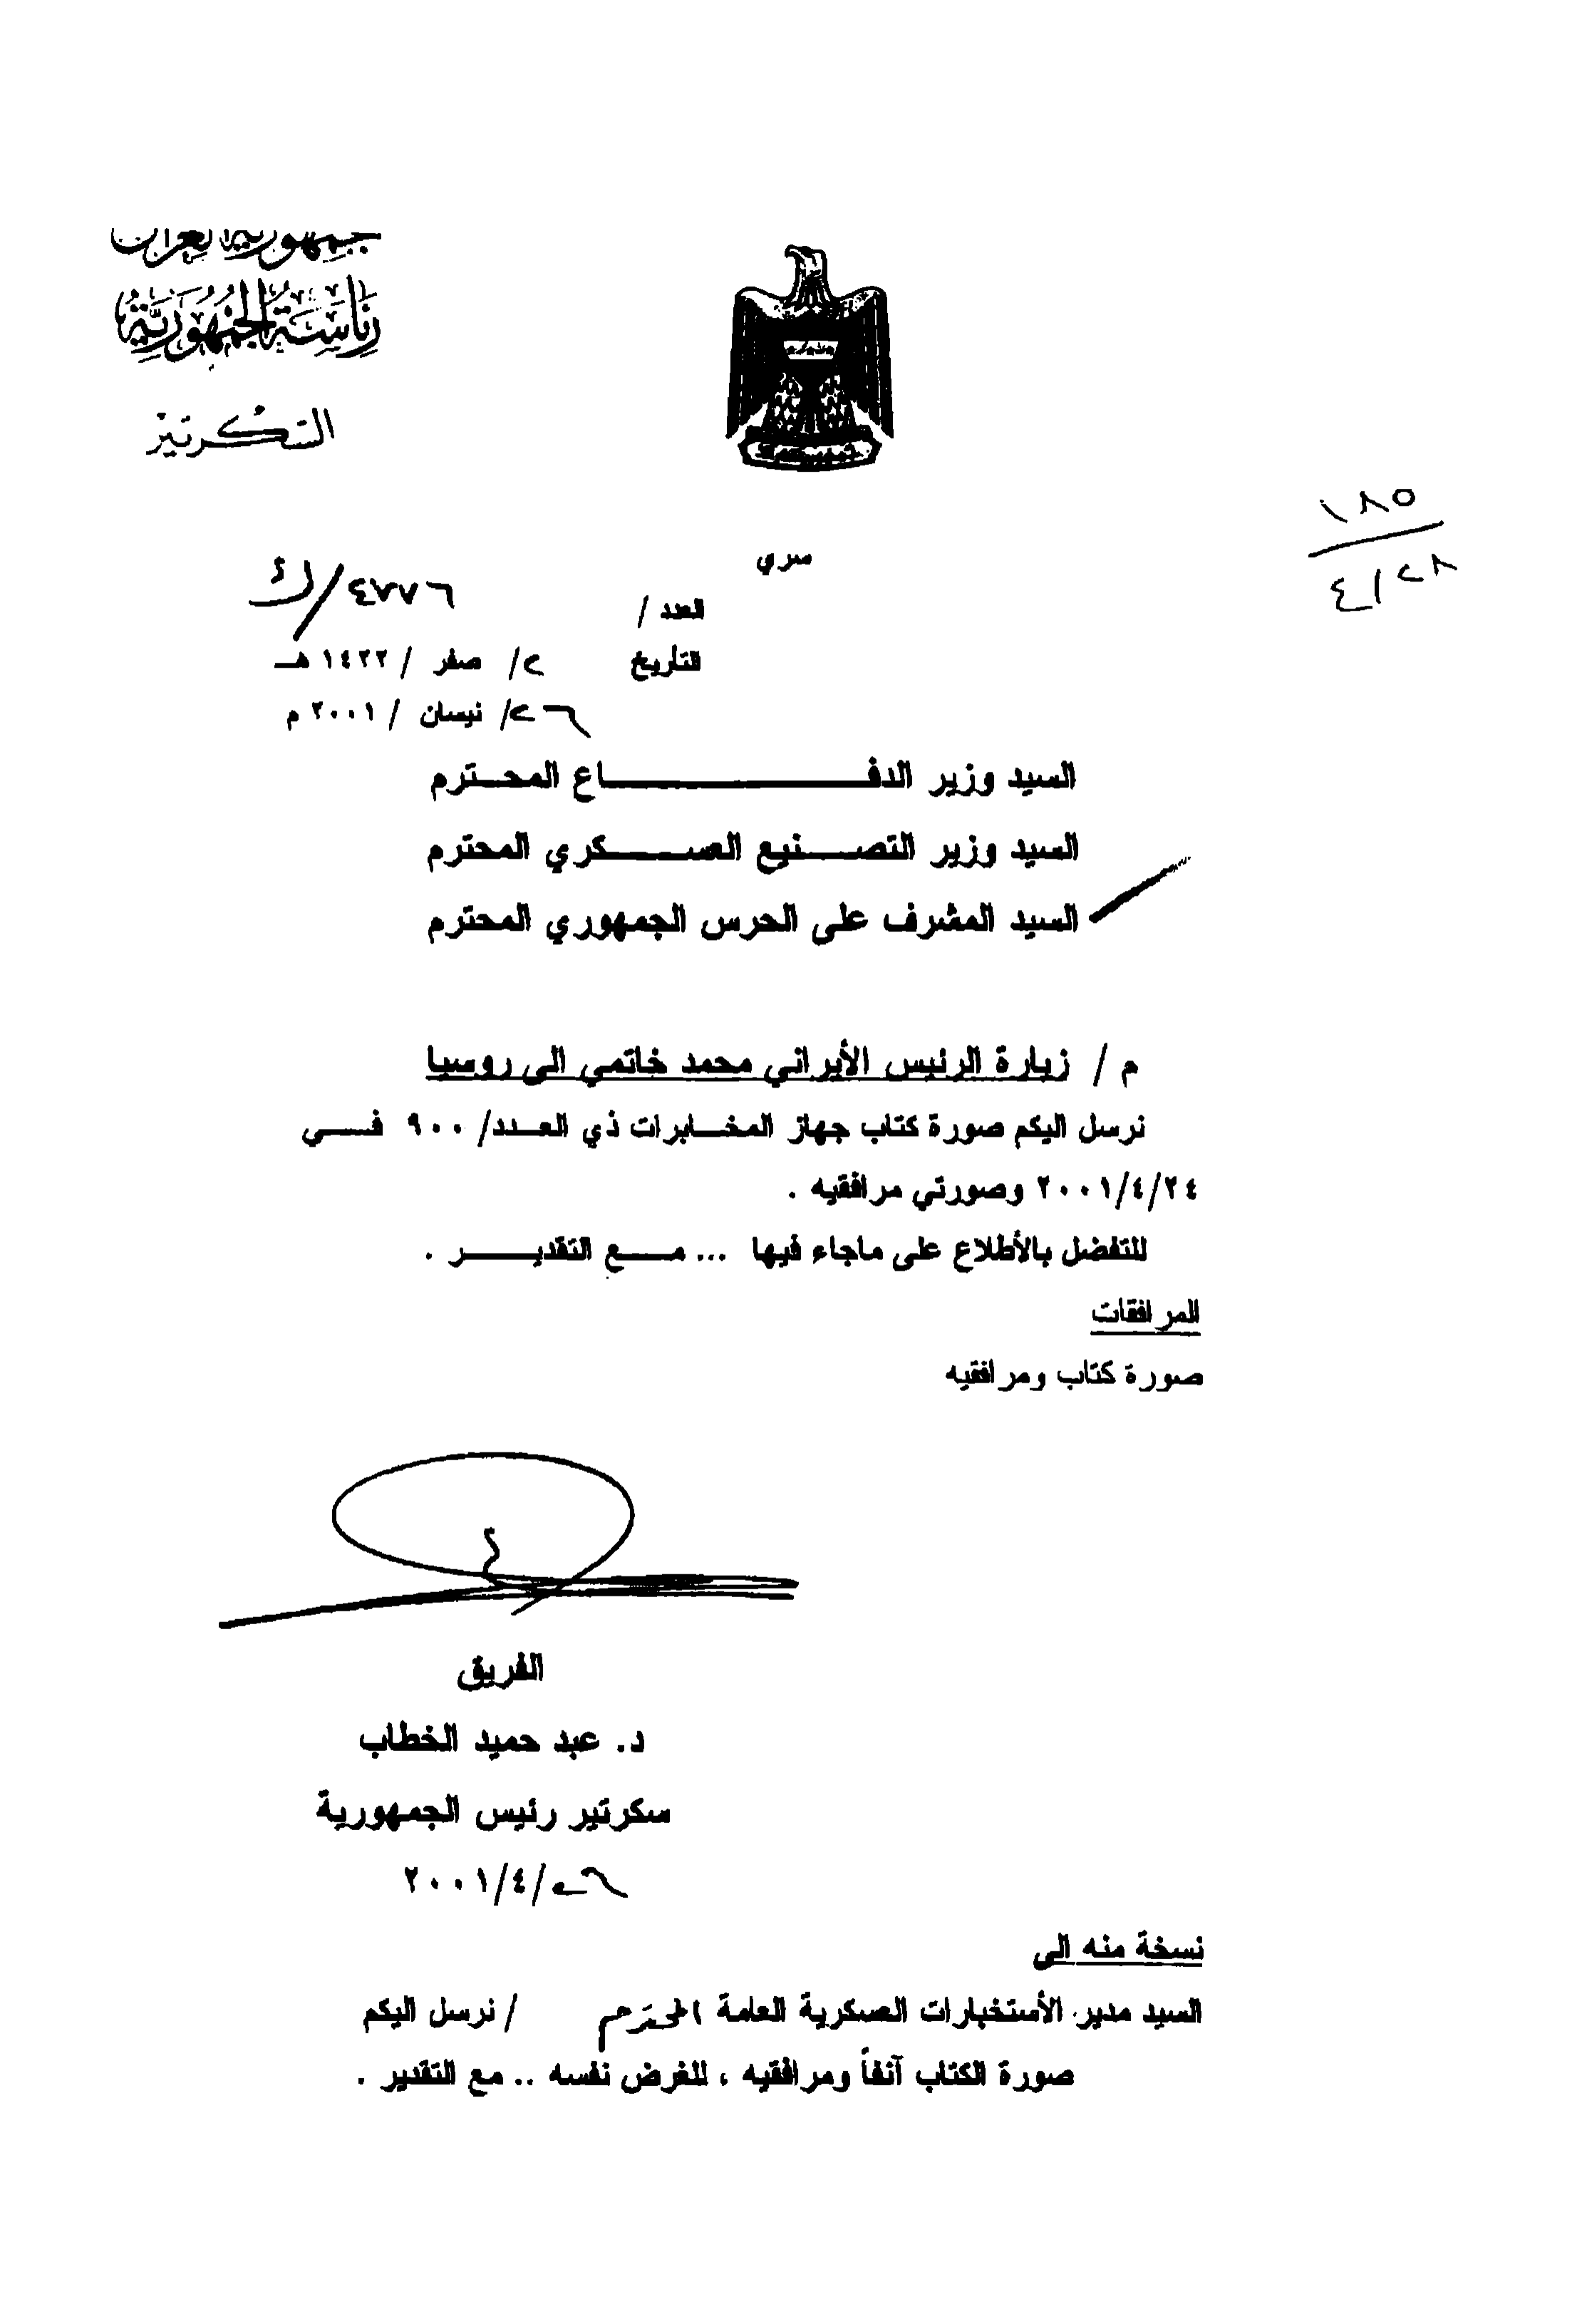 جمهورية العراق
رئاسة الجمهورية
السكرتير
١٨٥
٤/٢٨
سري
العدد / ٤٧٧٦/ك
التأريخ ٢/ صفر / ١٤٢٢ هـ
٢٦/ نيسان / ٢٠٠١ م
السيد وزير الدفـــــــــاع المحـترم
السيد وزير التصـــنيع العســـكري المحترم
السيد المشرف على الحرس الجمهوري المحترم
م / زيارة الرئيس الأيراني محمد خاتمي الى روسيا
نرسل اليكم صورة كتاب جهاز المخـابرات ذي العـدد/ ٩٠٠ فـــي
٢٠٠١/٤/٢٤ وصورتي مرافقيه .
للتفضل بالأطلاع على ماجاء فيها ... مـــع التقديـــــر .
المرافقات
صورة كتاب ومرافقيه
الفريق
د. عبد حميد الخطاب
سكرتير رئيس الجمهورية
٢٠٠١/٤/٢٦
نسخة منه الى
السيد مدير الأستخبارات العسكرية العامة المحترم / نرسل اليكم
صورة الكتاب آنفاً ومرافقيه ، للغرض نفسه .. مع التقدير .